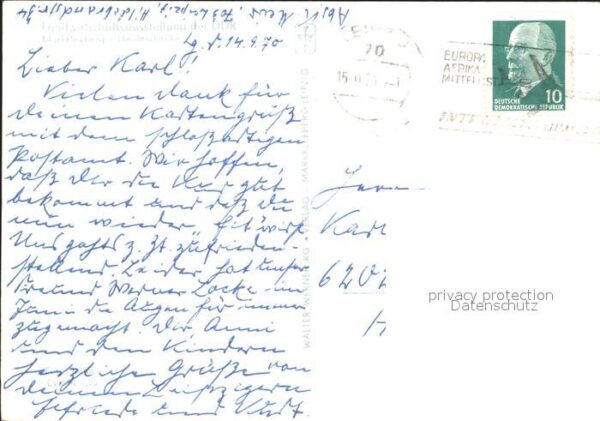 Abs. K. Meis, 703 Leipzig, Hildebrandstr. 34
Landwirtschaftsausstellung der DDR
d. 14.9.70
Lieber Karl!
Vielen Dank für
Deinen Kartengruß
mit dem schloßartigen
Postamt. Wir hoffen,
daß Dir die Kur gut
bekommt und daß Du
nun wieder fit wirst.
Uns gehts z. Zt. zufrieden
stellend. Leider hat unser
Freund Werner Locke im
Juni die Augen für immer
zugemacht. Dir, Anni
und den Kindern
herzliche Grüße von
Deinen Leipzigern
Elfriede und Kurt.
WALTER WIENBERG • VERLAG • MARKKLEEBERG-LEIPZIG
70
15.9.70
EUROPA
AFRIKA
MITTEL
INTER
DEUTSCHE
DEMOKRATISCHE REPUBLIK
10
Herrn
Karl
6202
privacy protection
Datenschutz